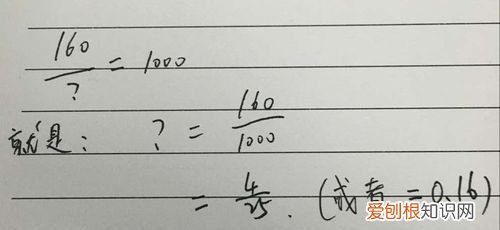 160/? = 1000
就是： ? = 160/1000
= 4/25. (或者 = 0.16)
爱刨根知识网